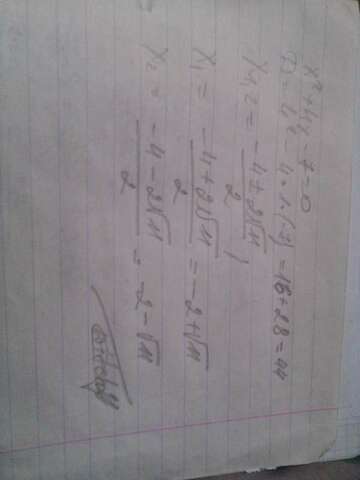 x² + 4x - 7 = 0
D = 4² - 4 · 1 · (-7) = 16 + 28 = 44
x₁,₂ = (-4 ± 2√11) / 2 ;
x₁ = (-4 + 2√11) / 2 = -2 + √11
x₂ = (-4 - 2√11) / 2 = -2 - √11